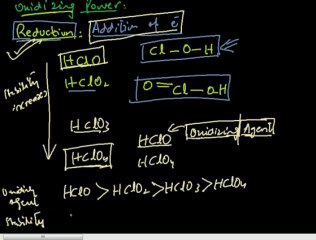 Oxidizing Power:
Reduction: Addition of e⁻
HClO
Cl-O-H
HClO2
O=Cl-OH
stability increases
HClO3
HClO
Oxidizing Agent
HClO4
HClO4
Oxidizing agent
HClO > HClO2 > HClO3 > HClO4
Stability